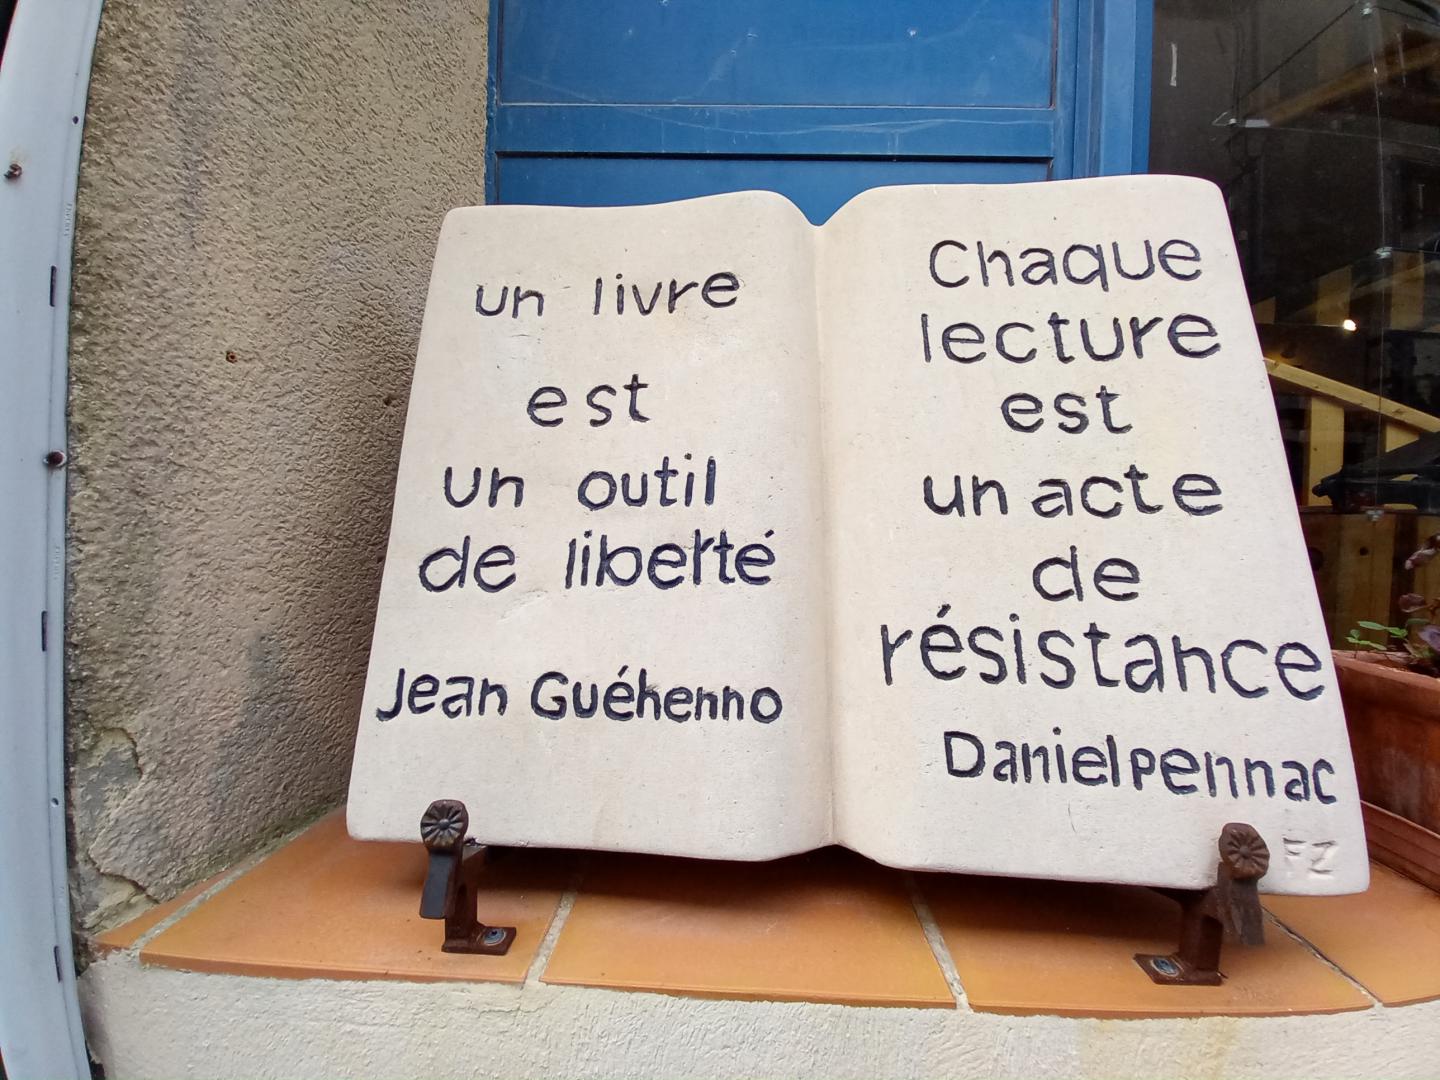 un livre
est
un outil
de liberté
Jean Guéhenno
Chaque
lecture
est
un acte
de
résistance
Daniel pennac
FZ